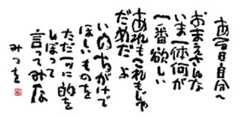 ある日自分へ
おまえさんな
いま一体何が
一番欲しい
あれもこれもじゃ
だめだよ
いのちがけで
ほしいものを
ただ一ツに的を
しぼって
言ってみな
みつを